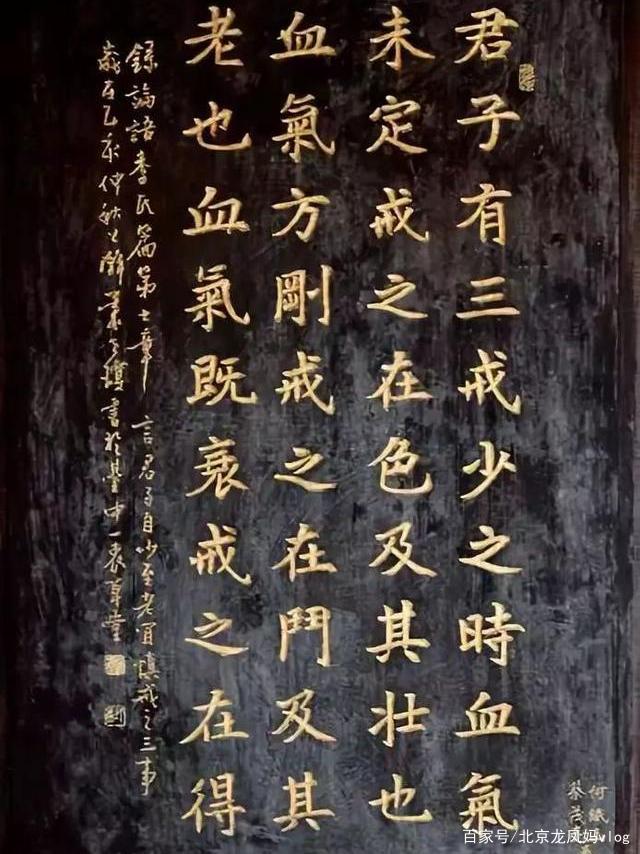 君子有三戒少之時血氣
未定戒之在色及其壯也
血氣方剛戒之在鬥及其
老也血氣既衰戒之在得
錄論語季氏篇第七章 言君子自少至老宜慎戒之三事
歲在乙亥仲秋之 書於臺中一衷草堂
百家号/北京龙凤妈vlog